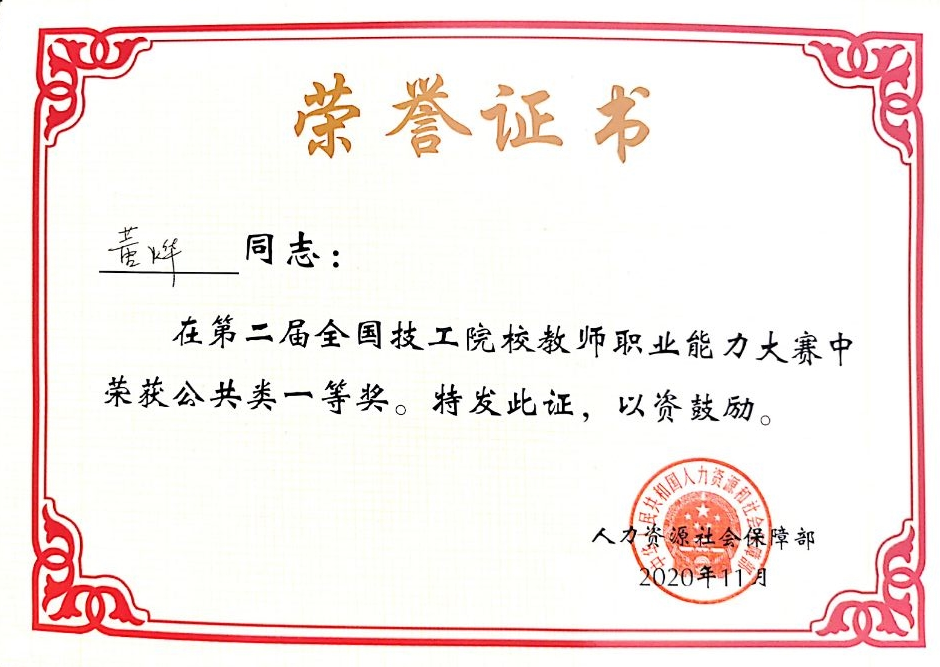 荣誉证书
黄烨 同志：
在第二届全国技工院校教师职业能力大赛中
荣获公共类一等奖。特发此证，以资鼓励。
中华人民共和国人力资源和社会保障部
人力资源社会保障部
2020年11月